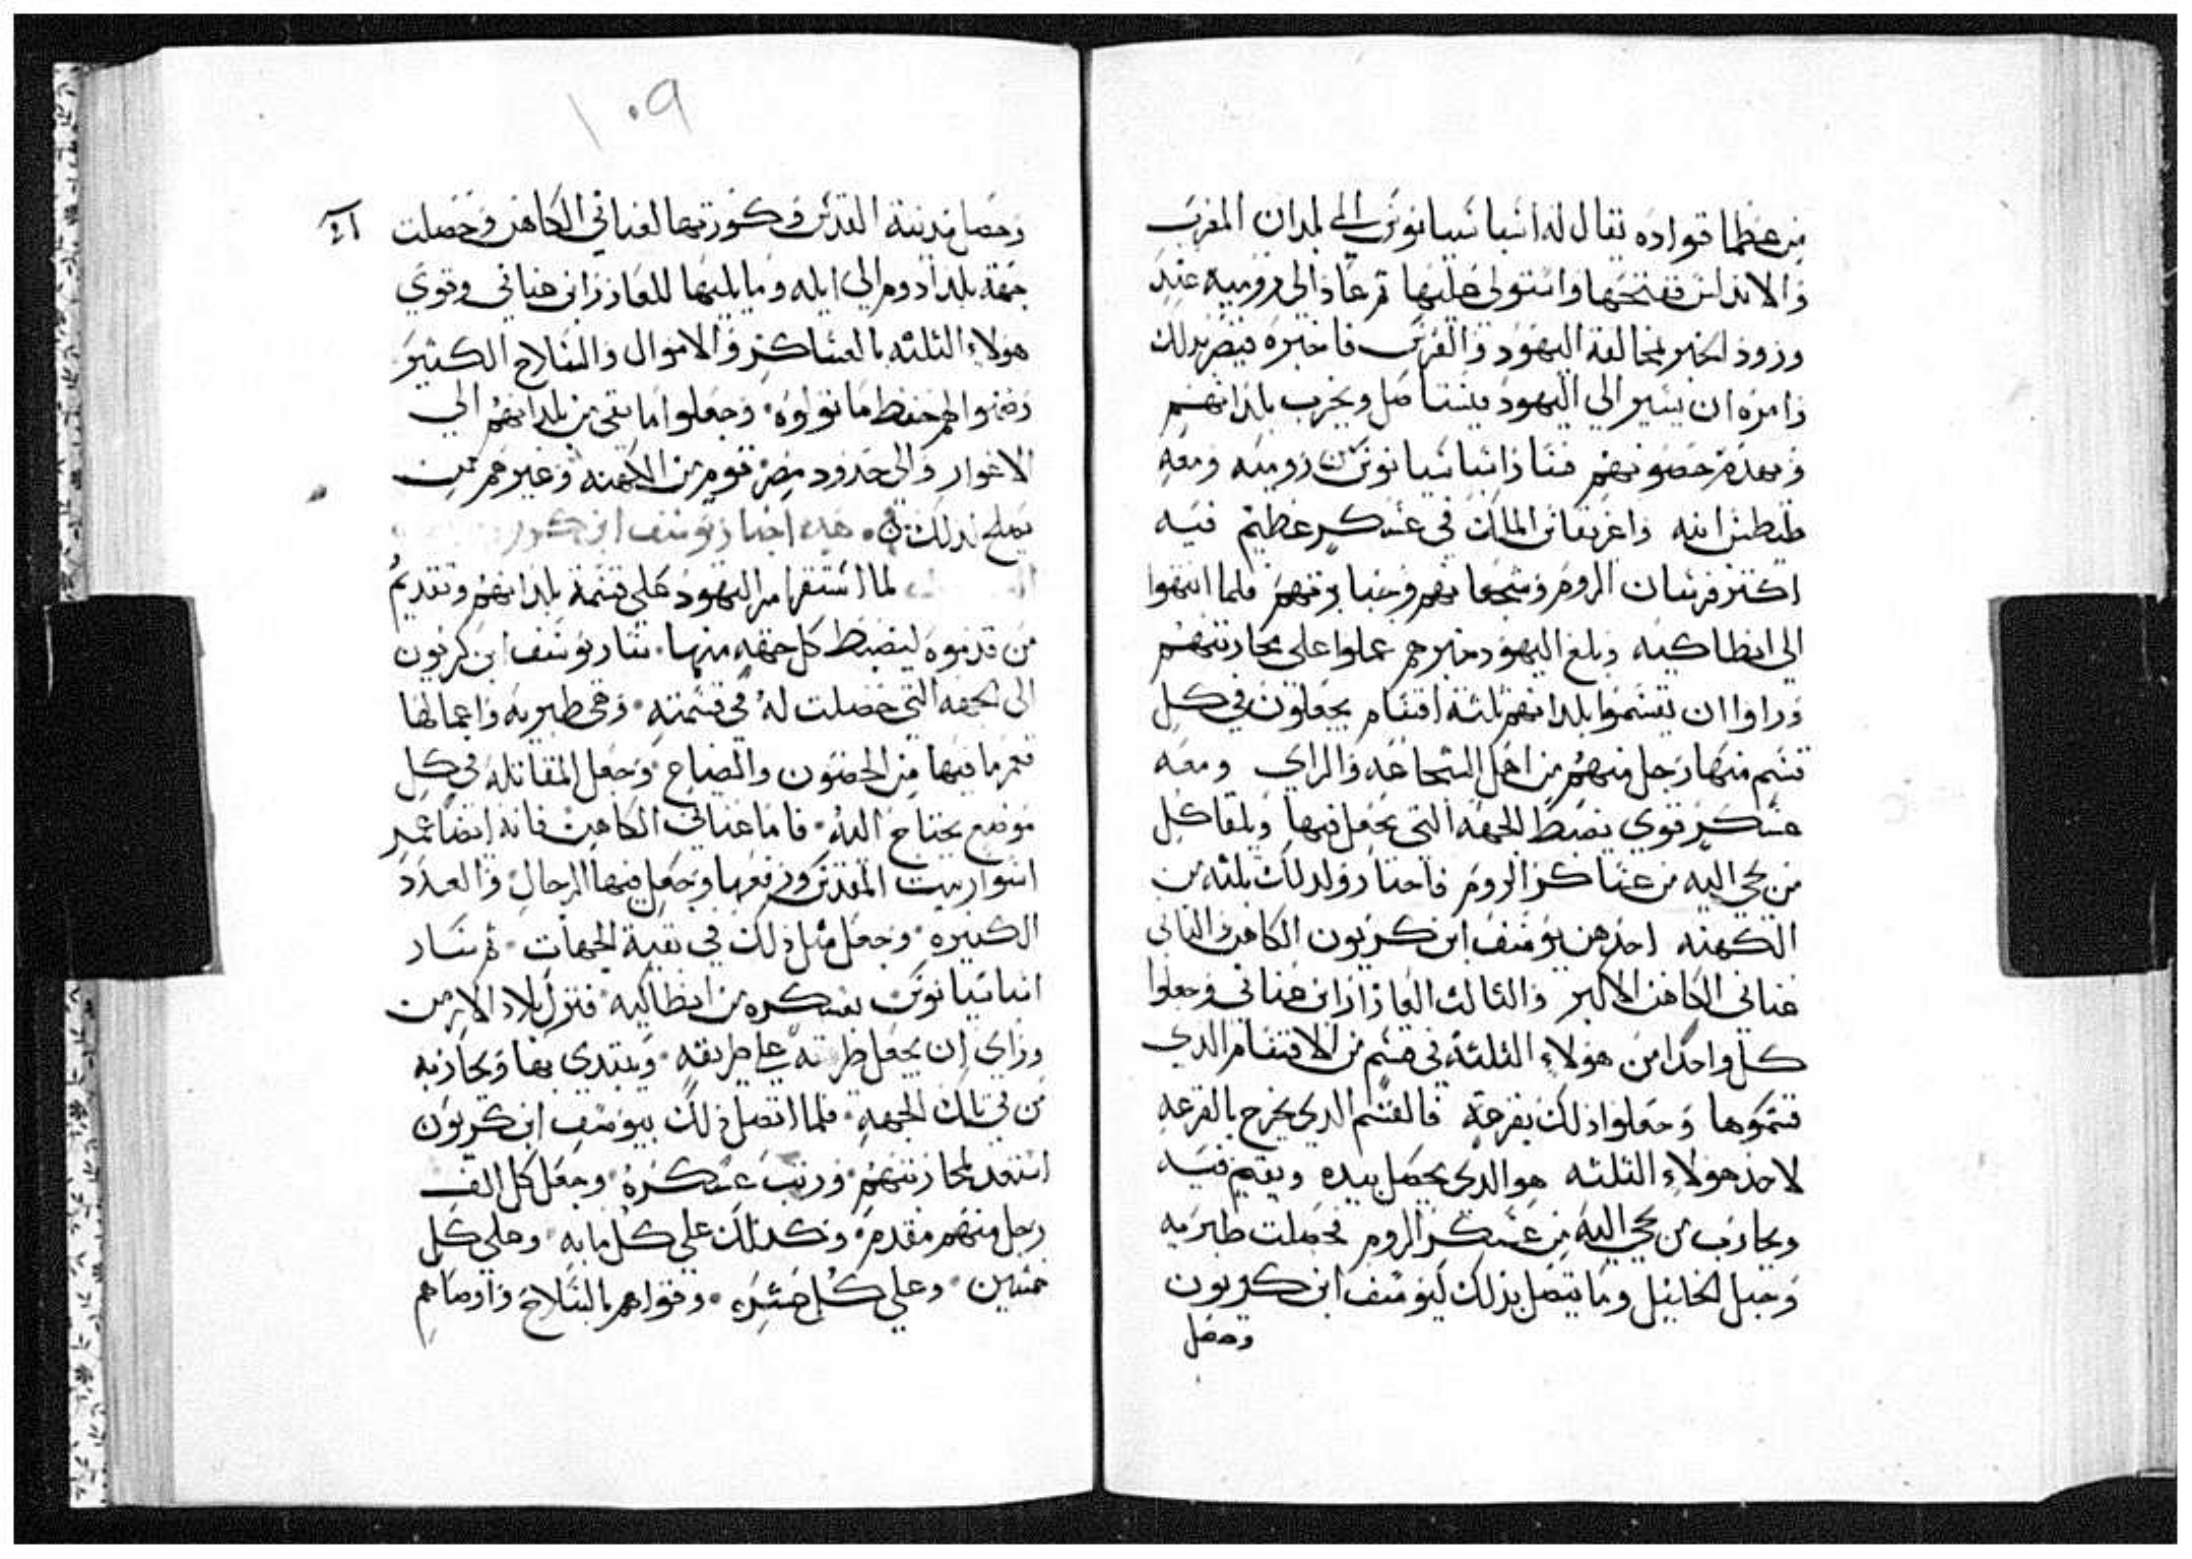 من عظما قواده يقال له اسباسيانوس الي بلدان المغرب
والاندلس ففتحها واستولي عليها ثم عاد الي روميه عند
ورود الخبر بمخالفة اليهود والفرس فاخبره قيصر بذلك
وامره ان يسير الي اليهود فيستاصل ويخرب بلدانهم
ويهدم حصونهم فسار اسباسيانوس من روميه ومعه
طيطس ابنه واغريفاس الملك في عسكر عظيم فيه
اكثر فرسان الروم وشجعانهم وجبابرتهم فلما انتهوا
الي انطاكيه وبلغ اليهود خبرهم عملوا علي محاربتهم
وراوا ان يقسموا بلدانهم ثلثة اقسام يجعلون في كل
قسم منها رجل منهم من اهل الشجاعه والراي ومعه
عسكر قوي يضبط الجهه التي يجعل فيها ويلقا كل
من يجي اليه من عساكر الروم فاختاروا لذلك ثلثه من
الكهنه احدهن يوسف ابن كريون الكاهن والثاني
عناني الكاهن الاكبر والثالث العازار ابن عناني وجعلوا
كل واحدا من هولاء الثلثة في قسم من الاقسام الدي
قسموها وجعلوا ذلك بقرعة فالقسم الدي يخرج بالقرعه
لاحد هولاء الثلثه هو الدي يحصل بيده ويقيم فيه
ويحارب من يجي اليه من عسكر الروم فحصلت طبريه
وجبل الخليل وما يتصل بذلك ليوسف ابن كريون
وحصل
١٠٩
وحصل مدينة القدس وكورتها لعناني الكاهن وحصلت
جهة بلد ادوم الي ايله وما يليها للعازر ابن عناني وقوي
هولاء الثلثه بالعساكر والاموال والسلاح الكثير
وضموا لهم حفظ ما تولوه وجعلوا ما بقي من بلدانهم الي
الاغوار والي حدود مصر قوم من الكهنه وغيرهم ممن
يصلح لذلك هذه اخبار يوسف ابن كريون
لما استقر امر اليهود علي قسمة بلدانهم وتقديم
من قدموه ليضبط كل جهه منها سار يوسف ابن كريون
الي الجهه التي حصلت له في قسمته وهي طبريه واعمالها
فعمر ما فيها من الحصون والضياع وجعل المقاتله في كل
موضع يحتاج اليه فاما عناني الكاهن فانه ايضا عمر
اسوار بيت المقدس ورفعها وجعل فيها الرجال والعدد
الكبيره وجعل مثل ذلك في بقية الجهات ثم سار
اسباسيانوس بعسكره من انطاكيه فنزل بلاد الارمن
وراي ان يجعل طبرية علي طريقه ويبتدي بها ويحارب
من في تلك الجهه فلما اتصل ذلك بيوسف ابن كريون
استعد لمحاربتهم ورتب عسكره وجعل كل الف
رجل منهم مقدم وكذلك علي كل مايه وعلي كل
خمسين وعلي كل عشره وقواهم بالسلاح واوصاهم